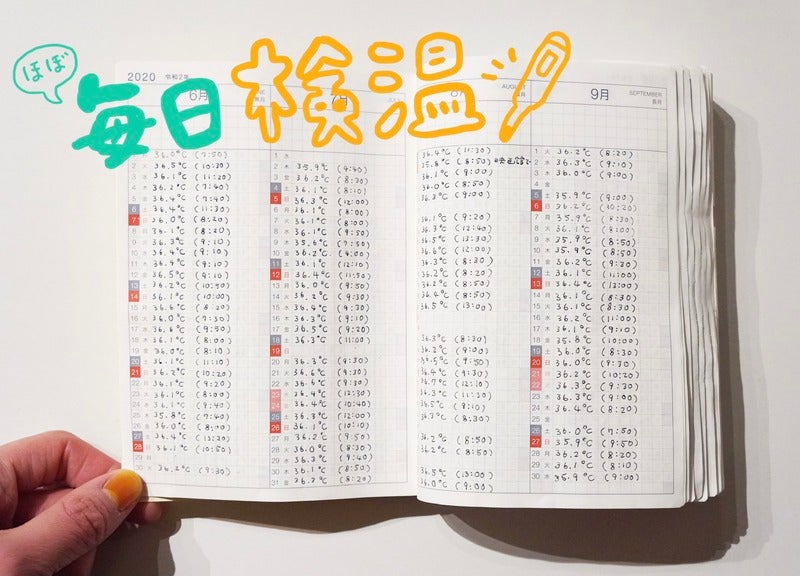 ほぼ
毎日検温
2020 令和2年
6月
7月 JULY
AUGUST
9月 SEPTEMBER
長月
36.0℃ (7:50)
2 火 36.5℃ (10:30)
3 水 36.1℃ (11:20)
4 木 36.2℃ (7:40)
5 金 36.4℃ (7:40)
6 土 36.4℃ (11:30)
7 日 36.0℃ (8:20)
8 月 36.1℃ (8:20)
9 火 36.3℃ (9:10)
10 水 36.4℃ (9:10)
11 木 36.4℃ (9:10)
12 金 36.5℃ (9:10)
13 土 36.2℃ (10:50)
14 日 36.1℃ (10:00)
15 月 (8:20)
16 火 36.0℃ (7:30)
17 水 36.6℃ (9:50)
18 木 36.1℃ (9:00)
19 金 36.0℃ (8:10)
20 土 36.1℃ (11:10)
21 日 36.2℃ (10:20)
22 月 36.1℃ (9:20)
23 火 36.1℃ (8:00)
24 水 36.1℃ (9:40)
25 木 35.8℃ (9:40)
26 金 36.0℃ (8:00)
27 土 36.4℃ (13:20)
28 日 36.1℃ (10:50)
29 月
30 火 36.2℃ (9:30)
1 水
2 木 35.9℃ (9:40)
3 金 36.2℃ (8:30)
4 土 36.1℃ (8:10)
5 日 36.3℃ (12:00)
6 月 36.1℃ (8:00)
7 火 36.1℃ (8:00)
8 水 36.1℃ (9:50)
9 木 35.6℃ (7:50)
10 金 36.2℃ (8:50)
11 土 36.1℃ (12:10)
12 日 36.4℃ (11:50)
13 月 36.0℃ (9:50)
14 火 36.2℃ (9:30)
15 水 36.4℃ (9:30)
16 木 36.3℃ (9:10)
17 金 36.5℃ (9:20)
18 土 36.3℃ (11:00)
19 日
20 月 36.3℃ (9:30)
21 火 36.6℃ (9:30)
22 水 36.6℃ (9:30)
23 木 36.4℃ (12:30)
24 金 36.4℃ (10:40)
25 土 36.3℃ (12:00)
26 日 36.1℃ (10:10)
27 月 36.2℃ (9:50)
28 火 36.0℃ (8:50)
29 水 36.3℃ (9:40)
30 木 36.1℃ (8:50)
31 金 36.2℃ (8:20)
36.4℃ (11:30)
35.8℃ (8:50)
36.1℃ (9:00)
36.0℃ (8:50)
36.3℃ (9:00)
36.1℃ (9:20)
36.3℃ (12:40)
36.5℃ (13:30)
36.6℃ (12:00)
36.3℃ (8:30)
36.2℃ (8:20)
36.2℃ (8:50)
36.4℃ (8:50)
36.5℃ (13:00)
36.3℃ (8:30)
36.2℃ (9:00)
36.5℃ (9:50)
36.4℃ (9:30)
(12:10)
36.3℃ (11:30)
36.5℃ (9:10)
36.3℃ (8:30)
36.2℃ (8:50)
36.2℃ (8:50)
36.5℃ (13:00)
36.0℃ (9:00)
1 火 36.2℃ (8:20)
2 水 36.3℃ (9:10)
3 木 36.0℃ (9:00)
4 金
5 土 35.9℃ (9:00)
6 日 36.2℃ (10:20)
7 月 35.9℃ (8:30)
8 火 36.1℃ (8:00)
9 水 35.9℃ (8:50)
10 木 35.9℃ (8:50)
11 金 36.2℃ (9:20)
12 土 36.1℃ (12:00)
13 日 36.4℃ (12:00)
14 月 36.1℃ (8:30)
15 火 36.1℃ (8:30)
16 水 36.2℃ (11:00)
17 木 36.1℃ (9:00)
18 金 35.8℃ (10:00)
19 土 36.0℃ (8:30)
20 日 36.0℃ (9:30)
21 月 36.2℃ (10:20)
22 火 36.3℃ (9:30)
23 水 36.3℃ (9:00)
24 木 36.4℃ (8:20)
25 金
26 土 36.0℃ (7:50)
27 日 35.9℃ (9:50)
28 月 36.2℃ (8:50)
29 火 36.1℃ (8:10)
30 水 35.9℃ (9:00)